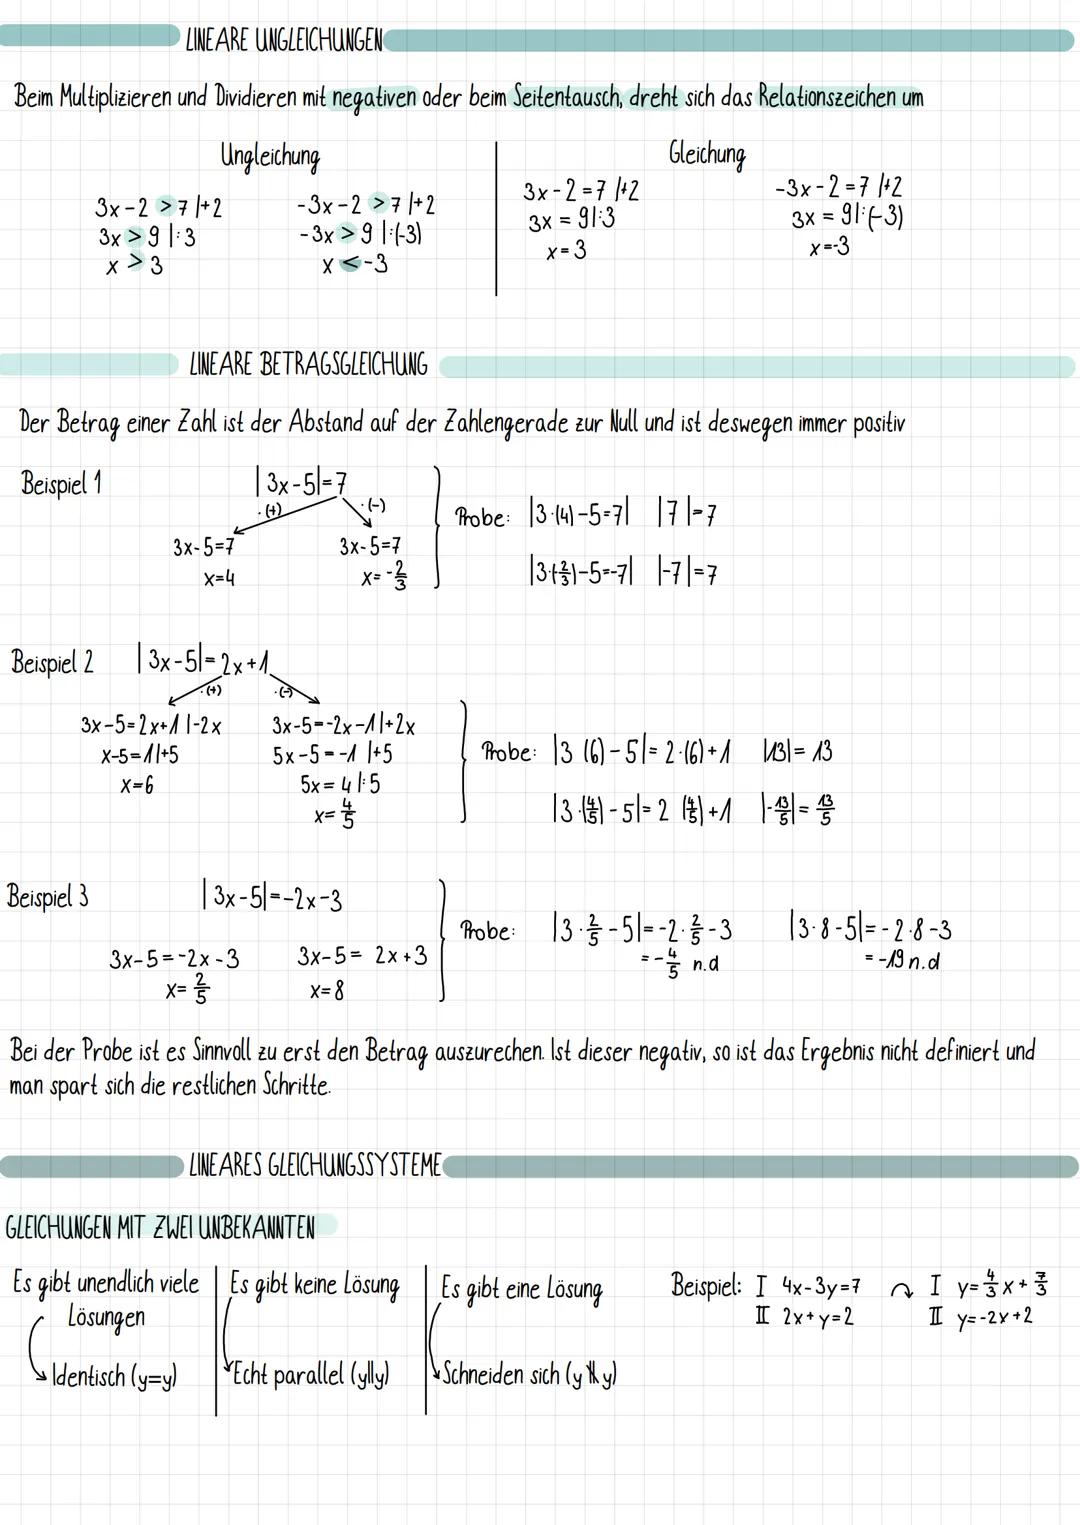 LINEARE UNGLEICHUNGEN
Beim Multiplizieren und Dividieren mit negativen oder beim Seitentausch, dreht sich das Relationszeichen um
Ungleichung
3x-2 >7 |+2
3x >9 |:3
x > 3
-3x-2 >7 |+2
-3x > 9 |:(-3)
x < -3
Gleichung
3x-2=7 |+2
3x = 9|:3
x=3
-3x-2=7 |+2
3x = 9|:(-3)
x=-3
LINEARE BETRAGSGLEICHUNG
Der Betrag einer Zahl ist der Abstand auf der Zahlengerade zur Null und ist deswegen immer positiv
Beispiel 1
|3x-5|=7
·(+)
·(-)
3x-5=7
x=4
3x-5=7
x=-2/3
Probe: |3·(4)-5=7| |7|=7
|3·(-2/3)-5=-7| |-7|=7
Beispiel 2
|3x-5|=2x+1
·(+)
·(-)
3x-5=2x+1 |-2x
x-5=1|+5
x=6
3x-5=-2x-1|+2x
5x-5=-1 |+5
5x=4|:5
x=4/5
Probe: |3 (6)-5|=2·(6)+1 |13|=13
|3·(4/5)-5|=2 (4/5)+1 |-13/5|=13/5
Beispiel 3
|3x-5|=-2x-3
3x-5=-2x-3
x=2/5
3x-5= 2x+3
x=8
Probe: |3·2/5-5|=-2·2/5-3
=-4/5 n.d
|3·8-5|=-2·8-3
=-19 n.d
Bei der Probe ist es Sinnvoll zu erst den Betrag auszurechen. Ist dieser negativ, so ist das Ergebnis nicht definiert und
man spart sich die restlichen Schritte.
LINEARES GLEICHUNGSSYSTEME
GLEICHUNGEN MIT ZWEI UNBEKANNTEN
Es gibt unendlich viele
Lösungen
Identisch (y=y)
Es gibt keine Lösung
Echt parallel (y||y)
Es gibt eine Lösung
Schneiden sich (y ∦ y)
Beispiel: I 4x-3y=7
II 2x+y=2
I y=4/3x+7/3
II y=-2x+2